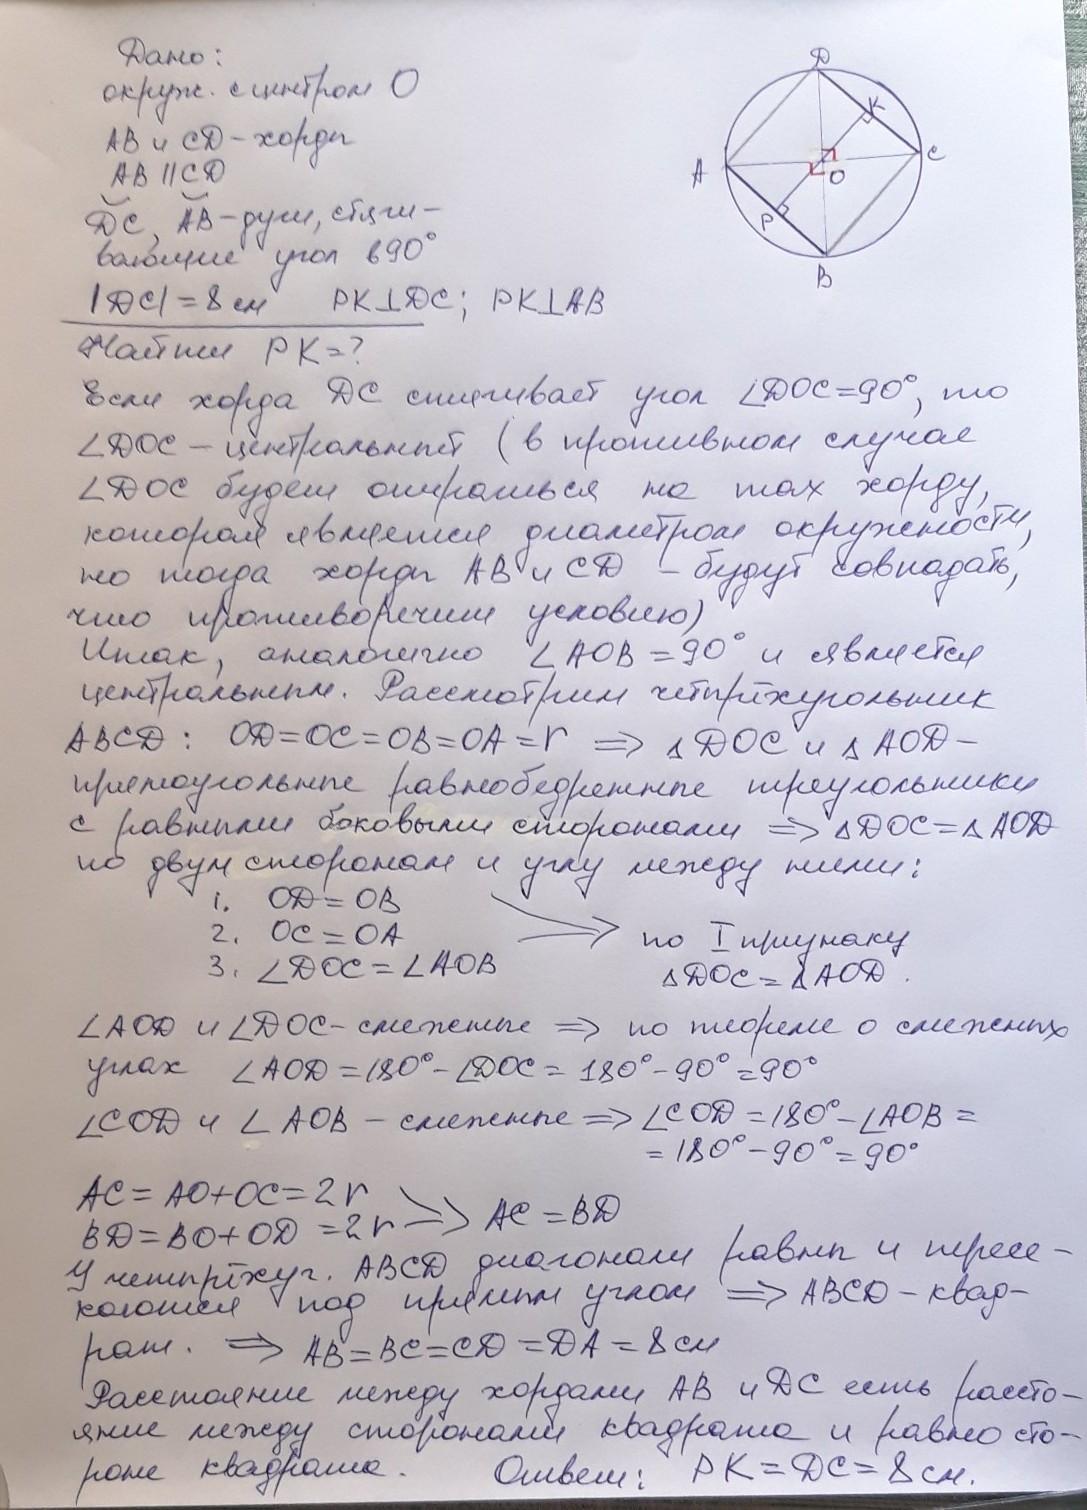 Дано:
окруж. с центром О
АВ и CD – хорды
АВ || CD
DC, AB – дуги, стяги-
вающие угол в 90°
|DC| = 8 см PK⊥DC; PK⊥AB
Найти PK = ?
Если хорда DC стягивает угол ∠DOC = 90°, то
∠DOC – центральный (в противном случае
∠DOC будет опираться на max хорду,
которая является диаметром окружности,
но тогда хорды АВ и CD – будут совпадать,
что противоречит условию)
Итак, аналогично ∠AOB = 90° и является
центральным. Рассмотрим четырёхугольник
ABCD: OD = OC = OB = OA = r ⟹ △DOC и △AOD –
прямоугольные равнобедренные треугольники
с равными боковыми сторонами ⟹ △DOC = △AOD
по двум сторонам и углу между ними:
1. OD = OB
2. OC = OA
3. ∠DOC = ∠AOB
по I признаку
△DOC = △AOD.
∠AOD и ∠DOC – смежные ⟹ по теореме о смежных
углах ∠AOD = 180° – ∠DOC = 180° – 90° = 90°
∠COD и ∠AOB – смежные ⟹ ∠COD = 180° – ∠AOB =
= 180° – 90° = 90°
AC = AO + OC = 2r
BD = BO + OD = 2r ⟹ AC = BD
У четырёхуг. ABCD диагонали равны и пересе-
каются под прямым углом ⟹ ABCD – квад-
рат. ⟹ AB = BC = CD = DA = 8 см
Расстояние между хордами АВ и DC есть рассто-
яние между сторонами квадрата и равно сто-
роне квадрата. Ответ: PK = DC = 8 см.
D
K
C
A
O
P
B